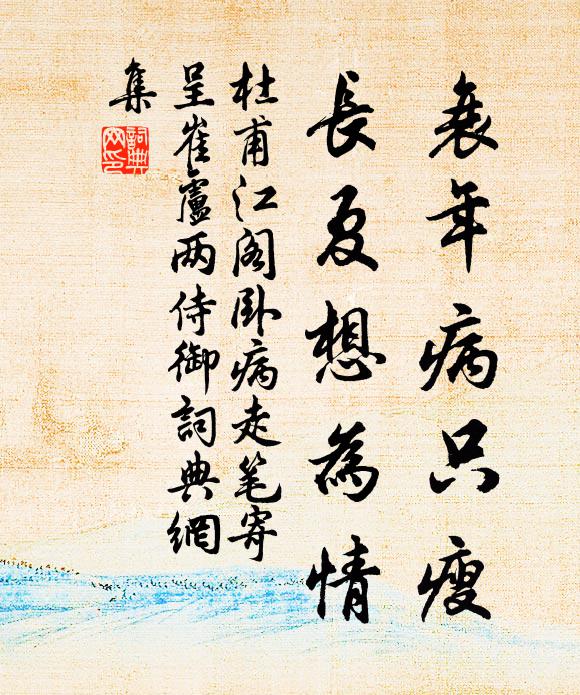 衰年病只瘦
長夏想為情
杜甫江阁卧病走笔寄
呈崔盧两侍御詞典網
集
詞典網印